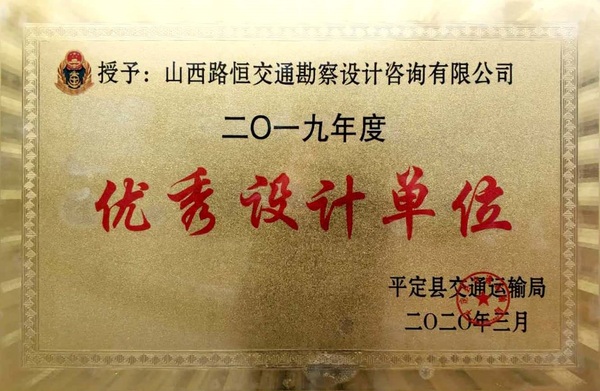 授予：山西路恒交通勘察设计咨询有限公司
二〇一九年度
优秀设计单位
平定县交通运输局
二〇二〇年三月